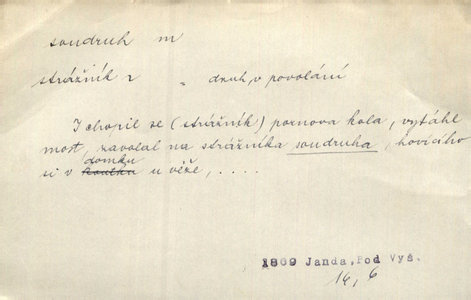 soudruh m
strážník z „ druh v povolání
I chopil se (strážník) poznova kola, vytáhl
most, zavolal na strážníka soudruha, hovícího
si v domku u věže, ....
1869 Janda, Pod Vyš.
14, 6